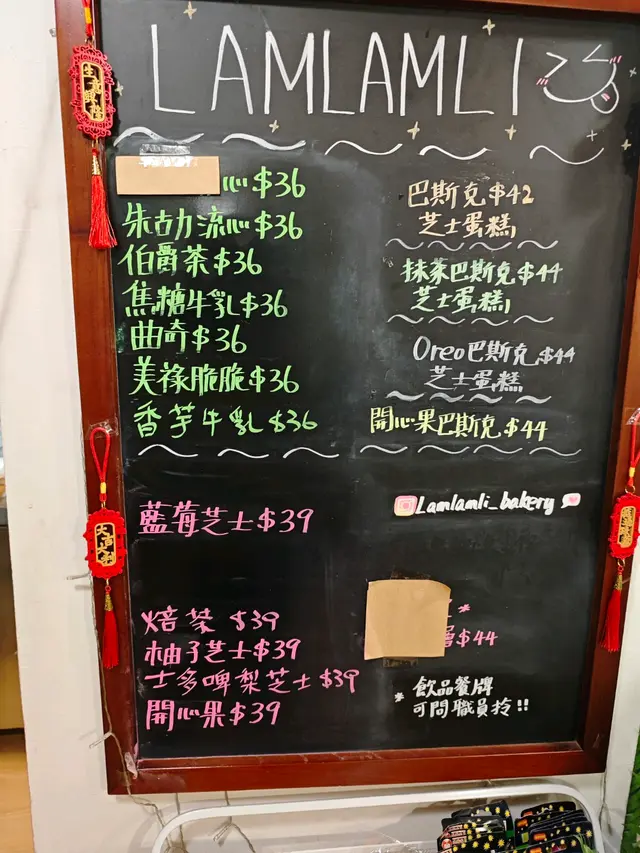 LAMLAMLI
心 $36
朱古力流心 $36
伯爵茶 $36
焦糖牛乳 $36
曲奇 $36
美祿脆脆 $36
香芋牛乳 $36
藍莓芝士 $39
焙茶 $39
柚子芝士 $39
士多啤梨芝士 $39
開心果 $39
巴斯克 $42
芝士蛋糕
抹茶巴斯克 $44
芝士蛋糕
Oreo巴斯克 $44
芝士蛋糕
開心果巴斯克 $44
Lamlamli_bakery
層 $44
* 飲品餐牌
可問職員拎!!